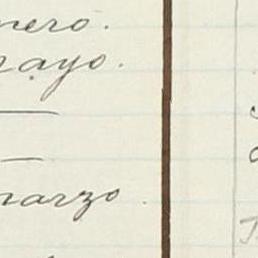 nero.
mayo.
—
—
marzo.